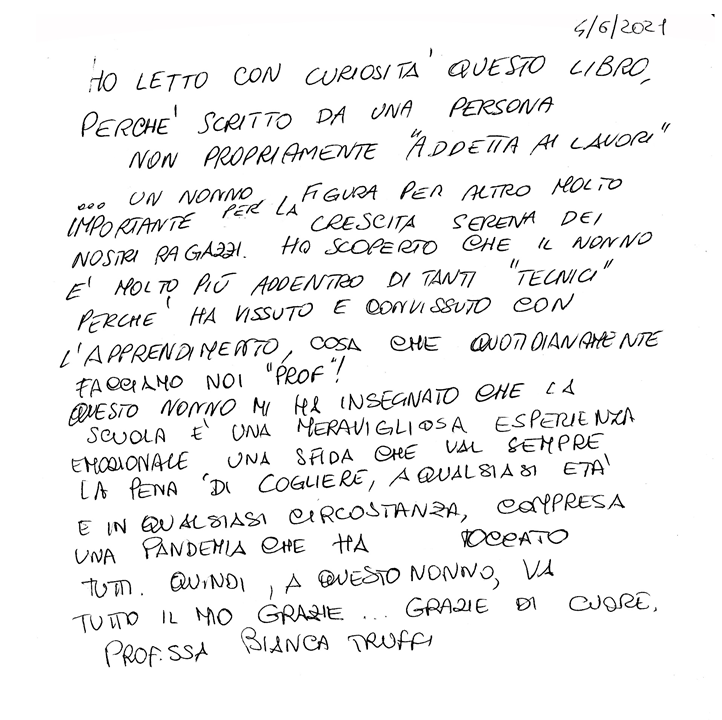 4/6/2021
HO LETTO CON CURIOSITA' QUESTO LIBRO,
PERCHE' SCRITTO DA UNA PERSONA
NON PROPRIAMENTE "ADDETTA AI LAVORI"
... UN NONNO, FIGURA PER ALTRO MOLTO
IMPORTANTE PER LA CRESCITA SERENA DEI
NOSTRI RAGAZZI. HO SCOPERTO CHE IL NONNO
E' MOLTO PIÙ ADDENTRO DI TANTI "TECNICI"
PERCHE' HA VISSUTO E CONVISSUTO CON
L'APPRENDIMENTO, COSA CHE QUOTIDIANAMENTE
FACCIAMO NOI "PROF"!
QUESTO NONNO MI HA INSEGNATO CHE LA
SCUOLA E' UNA MERAVIGLIOSA ESPERIENZA
EMOZIONALE UNA SFIDA CHE VAL SEMPRE
LA PENA DI COGLIERE, A QUALSIASI ETÀ
E IN QUALSIASI CIRCOSTANZA, COMPRESA
UNA PANDEMIA CHE HA TOCCATO
TUTTI. QUINDI, A QUESTO NONNO, VA
TUTTO IL MIO GRAZIE... GRAZIE DI CUORE.
PROF.SSA BIANCA TRUFFI